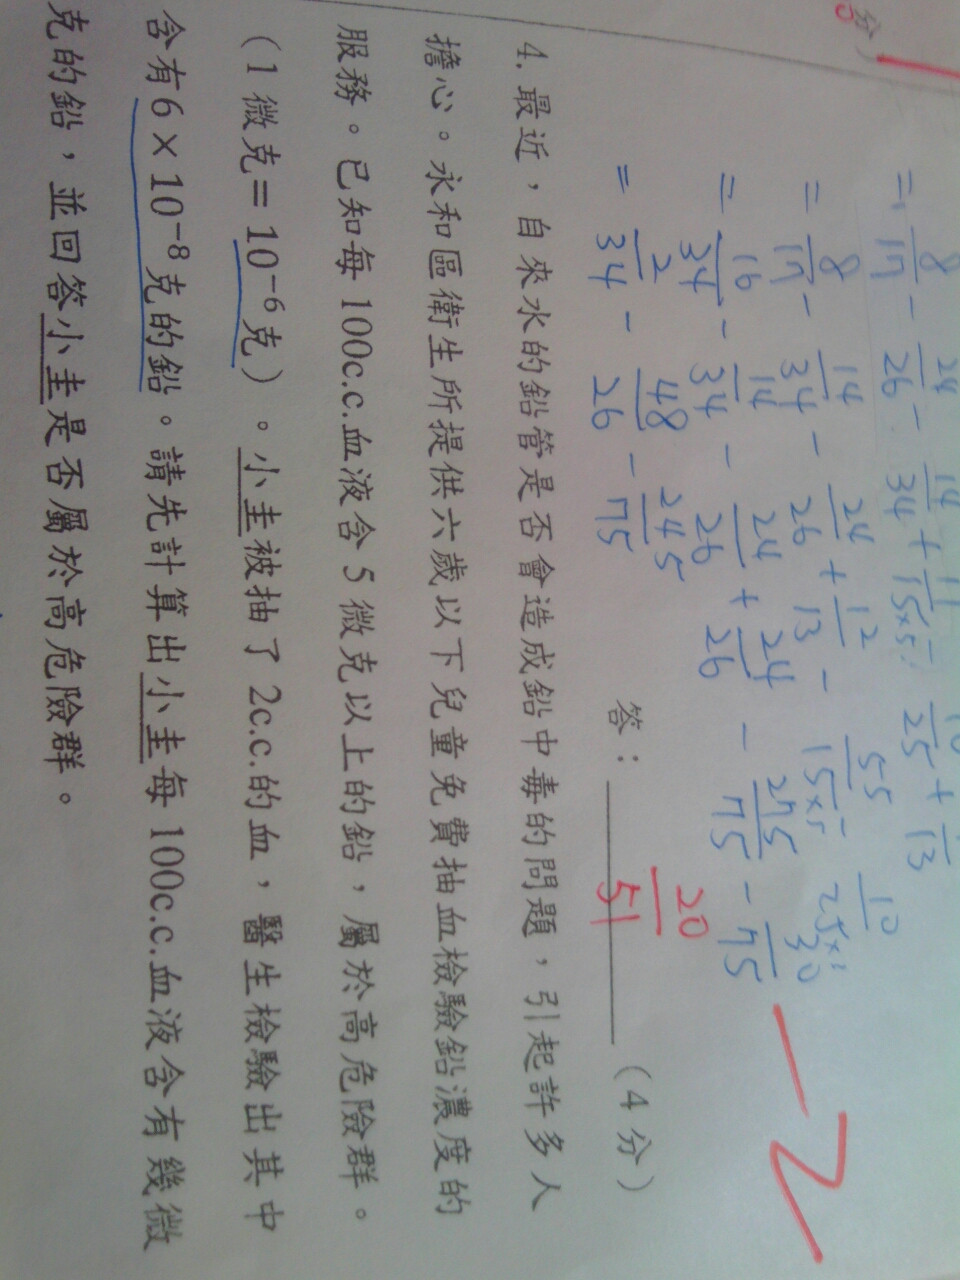 分)
= 8/17 - 24/26 - 14/34 +
= 8/17 - 14/34 - 24/26 + 12/13 -
= 16/34 - 14/34 - 24/26 + 24/26 - 275/75 - 30/75
= 2/34 - 48/26 - 245/75
20/51
答：（4 分）
4. 最近，自來水的鉛管是否會造成鉛中毒的問題，引起許多人
擔心。永和區衛生所提供六歲以下兒童免費抽血檢驗鉛濃度的
服務。已知每 100c.c.血液含 5 微克以上的鉛，屬於高危險群。
（1 微克＝10⁻⁶克）。小圭被抽了 2c.c.的血，醫生檢驗出其中
含有 6×10⁻⁸克的鉛。請先計算出小圭每 100c.c.血液含有幾微
克的鉛，並回答小圭是否屬於高危險群。